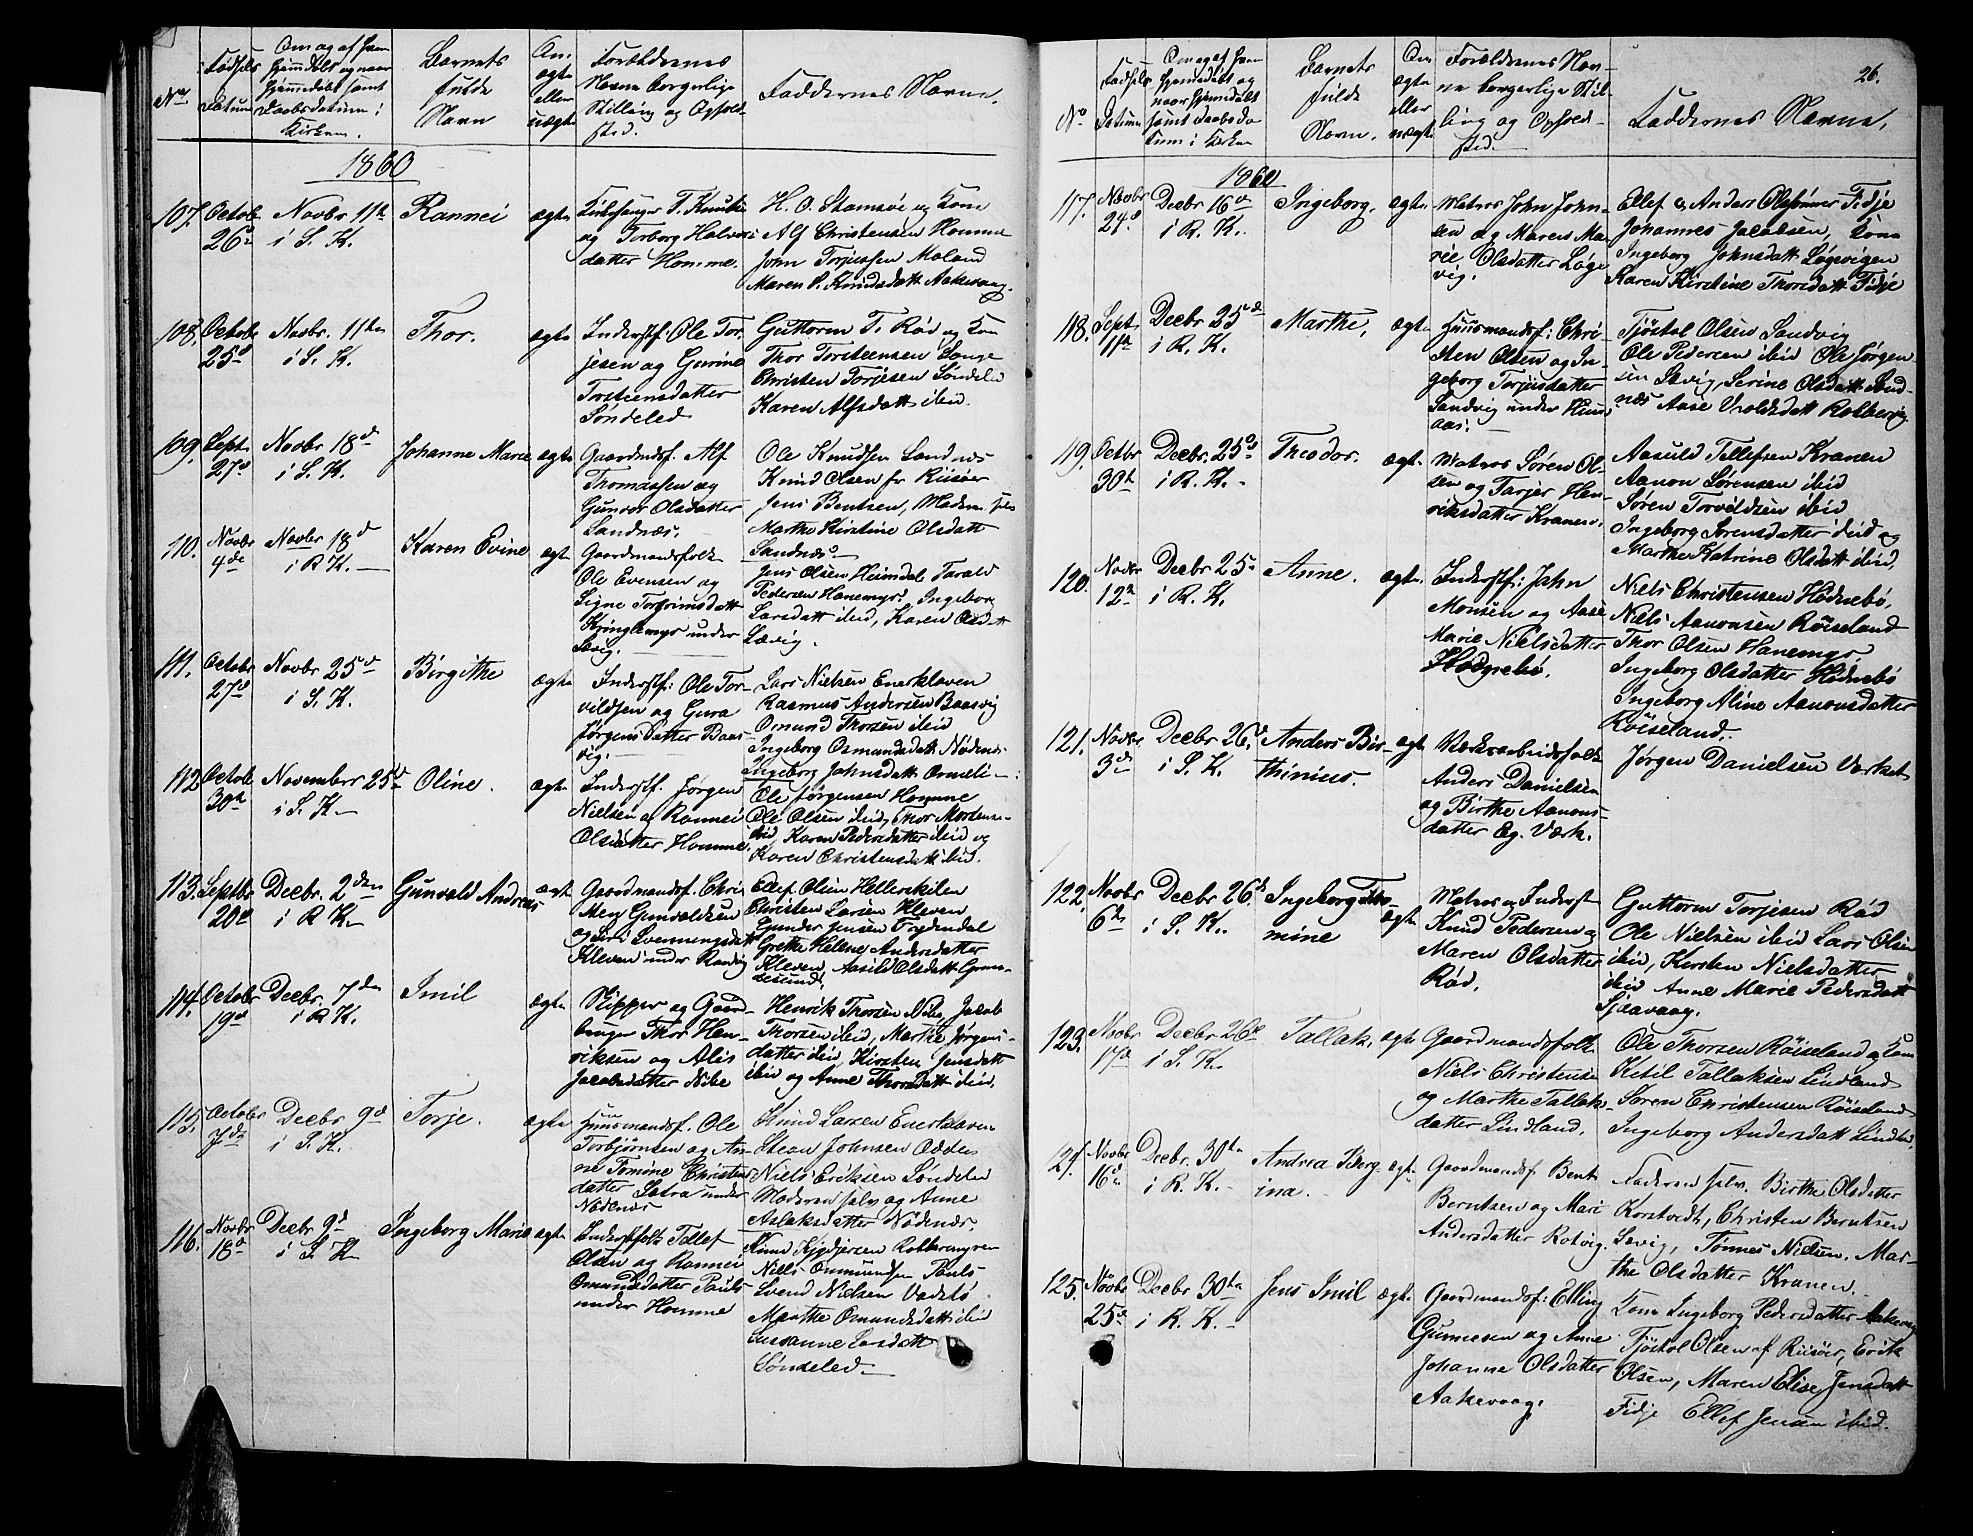 No
Fødsels
Datum
Om og af hvem
hjemmedøbt og naar
hjemmedøbt samt
Daabsdatum i
Kirken.
Barnets
fulde
Navn
Om
ægte
eller
uægte
Forældrenes
Navne borgerlige
Stilling og Opholds-
sted.
Faddernes Navne.
1860
107. Octob. 26d
Novbr 11te
i S. K.
Rannei
ægte
Kirkesanger T. Knuts
og Torborg Halvors
datter Homme.
H. O. Stamsøe og Kone
Alf Christensen Homme
John Torjussen Moland
Maren P. Knudsdatt Aakevaag.
108. Octob. 25d
Novbr. 11te
i S. K.
Thor.
ægte
Inderstf: Ole Tor-
jesen og Gurine
Torsteensdatter
Søndeled
Guttorm T. Rød og Kone
Thor Torsteensen Lange
Christen Torjesen Søndeled
Karen Alfsdatt ibid.
109. Sept. 27d
Novbr 18d
i S. K.
Johanne Marie
ægte
Gaardmdsf. Alf
Thomassen og
Gunvor Olsdatter
Sandnæs.
Ole Knudsen Sandnæs
Knud Olsen fr Riisøer
Jens Bentsen, Moderen selv
Marthe Kirstine Olsdatt
Sandnæs
110. Novbr 4de
Novbr 18d
i R K.
Karen Evine
ægte
Gaardmandsfolk
Ole Evensen og
Signe Torgrimsdatt
Kringlemyr under
Sævig.
Jens Olsen Heimdal Tarald
Pedersen Hanemyr, Ingeborg
Larsdatt ibid, Karen Olsdatt
Sævig.
111. Octobr 27d
Novbr 25d
i S. K.
Birgithe
ægte
Inderstf: Ole Tor-
vildsen og Gura
Jørgensdatter Baas-
vig.
Lars Nielsen Enerkleven
Rasmus Andersen Baasvig
Omund Thorsen ibid
Ingeborg Osmundsdatt Nødenæs
Ingeborg Johnsdatt Ormeli
112. Octob. 30te
November 25d
i S. K.
Oline.
ægte
Inderstf. Jørgen
Nielsen og Rannei
Olsdatter Homme.
Ole Jørgensen Homme
Ole Olsen ibid, Thor Mortensen
ibid, Karen Pedersdatter ibid og
Karen Christensdatt ibid.
113. Septbr 20de
Decbr. 2den
i R K.
Gunvald Andreas
ægte
Gaardmandsf. Chri-
sten Gunvaldsen
og Siri Svenningsdatt
Kleven under Ranvig
Ellef Olsen Hellerskilen
Christen Larsen Kleven
Gunder Jensen Frydendal
Grethe Helene Andersdatter
Kleven, Aasild Olsdatt Grum-
lesund.
114. Octobr 19d
Decbr. 7de
i R K.
Emil
ægte
Skipper og Gaard-
bruger Thor Hen-
riksen og Alis
Jacobsdatter Nibe
Henrik Thorsen Nibe, Jacob
Thorsen ibid, Marthe Jørgens-
datter ibid, Kirsten Jensdatt
ibid og Anne Thorsdatt ibid.
115. Octobr 7de
Decbr. 9d
i S. K.
Torje.
ægte
Huusmandsf. Ole
Torbjørnsen og An-
ne Tomine Christens
datter Sætra under
Nødenæs
Knud Larsen Enerkleven
Stean Johnsen Odden
Niels Eriksen Søndeled
Moderen selv og Anne
Aslaksdatter Nødenæs.
116. Novbr 18d
Decbr 9d
i S K
Ingeborg Marie
ægte
Inderstfolk Tellef
Olsen og Rannei
Omundsdatter Pauls
under Homme
Niels Ommundsen Pauls
Svend Nielsen Vadstø
Marthe Omundsdatt ibid
Susanne Larsdatt
Søndeled
26.
No
Fødsels
Datum
Om og af hvem
hjemmedøbt og
naar hjemdøbt
samt Daabsda-
tum i Kirken
Barnets
fulde
Navn.
Om
ægte
eller
uægte
Forældrenes Nav-
ne borgerlige Stil-
ling og Opholds-
sted.
Faddernes Navne.
1860
117. Novbr 24d
Decbr 16d
i R. K.
Ingeborg.
ægte
Matros John John-
sen og Maren Ma-
rie Olsdatter Løge-
vig.
Ellef og Anders Olsønner Fidje
Johannes Jacobsen, Kone
Ingeborg Johnsdatt Løgevigen
Karen Kirstine Thorsdatt Fidje
118. Sept. 11te
Decbr 25de
i R. K.
Marthe.
ægte
Huusmandsf: Chri-
sten Olsen og In-
geborg Torjusdatter
Sandvig under Huus-
aas.
Tjøstol Olsen Sandvig
Ole Pedersen ibid Ole Jørgen-
sen Sævig, Serine Olsdatt Sand-
næs Aase Vroldsdatt Robbersvig
119. Octbr 30te
Decbr. 25de
i R. K.
Theodor.
ægte
Matros Søren Ol-
sen og Tarjer Hen-
riksdatter Kranen.
Aasuld Tellefsen Kranen
Aanon Sørensen ibid
Søren Torvildsen ibid
Ingeborg Sørensdatter ibid og
Marthe Katrine Olsdatt ibid.
120. Novbr 12te
Decbr 25d
i R. K.
Anne.
ægte
Inderstf: Jahn
Monsen og Aase
Marie Nielsdatter
Hødnebø.
Niels Christensen Hødnebø,
Niels Aanonsen Røiseland
Thor Olsen Hanemyr
Ingeborg Olsdatter Hødnebø
Ingeborg Aline Aanonsdatter
Røiseland.
121. Novbr 3de
Decbr 26d
i S. K.
Anders Bir-
thinius.
ægte
Værksarbeidsfolk
Anders Danielsen
og Birthe Aanons-
datter Eg. Værk.
Jørgen Danielsen Værket
122. Novbr 6te
Decbr 26d
i S. K.
Ingeborg Tho-
mine
ægte
Matros og Inderst
Knud Pedersen og
Maren Olsdatter
Rød.
Guttorm Torjesen Rød
Ole Nielsen ibid Lars Olsen
ibid, Kirsten Nielsdatter
ibid Anne Marie Pedersdatt
Sjaavaag.
123. Novbr 17d
Decbr 26d
i S. K.
Tallak.
ægte
Gaardmandsfolk
Niels Christensen
og Marthe Tallak-
datter Lindland.
Ole Thorsen Røiseland og Kone
Ketil Tallaksen Lindland
Søren Christensen Røiseland
Ingeborg Andersdatt Lindland
124. Novbr 16d
Decbr. 30te
i R. K.
Andrea Berg-
ina.
ægte
Gaardmandsf Bent
Berntsen og Mari
Andersdatter Rotvig.
Faderen selv. Birthe Olsdatter
Korstvedt, Christen Berntsen
Sævig, Tønnes Nielsen. Mar-
the Olsdatter Kranen.
125. Novbr 25d
Decbr 30te
i R. K.
Jens Emil
ægte
Gaardmandsf: Elling
Gunnesen og Anne
Johanne Olsdatter
Aakevaag.
Kone Ingeborg Pedersdatter Aakevaag
Tjøstol Olsen af Riisøer, Erik
Olsen, Maren Elise Jensdatt
Fidje Ellef Jensen ibid.